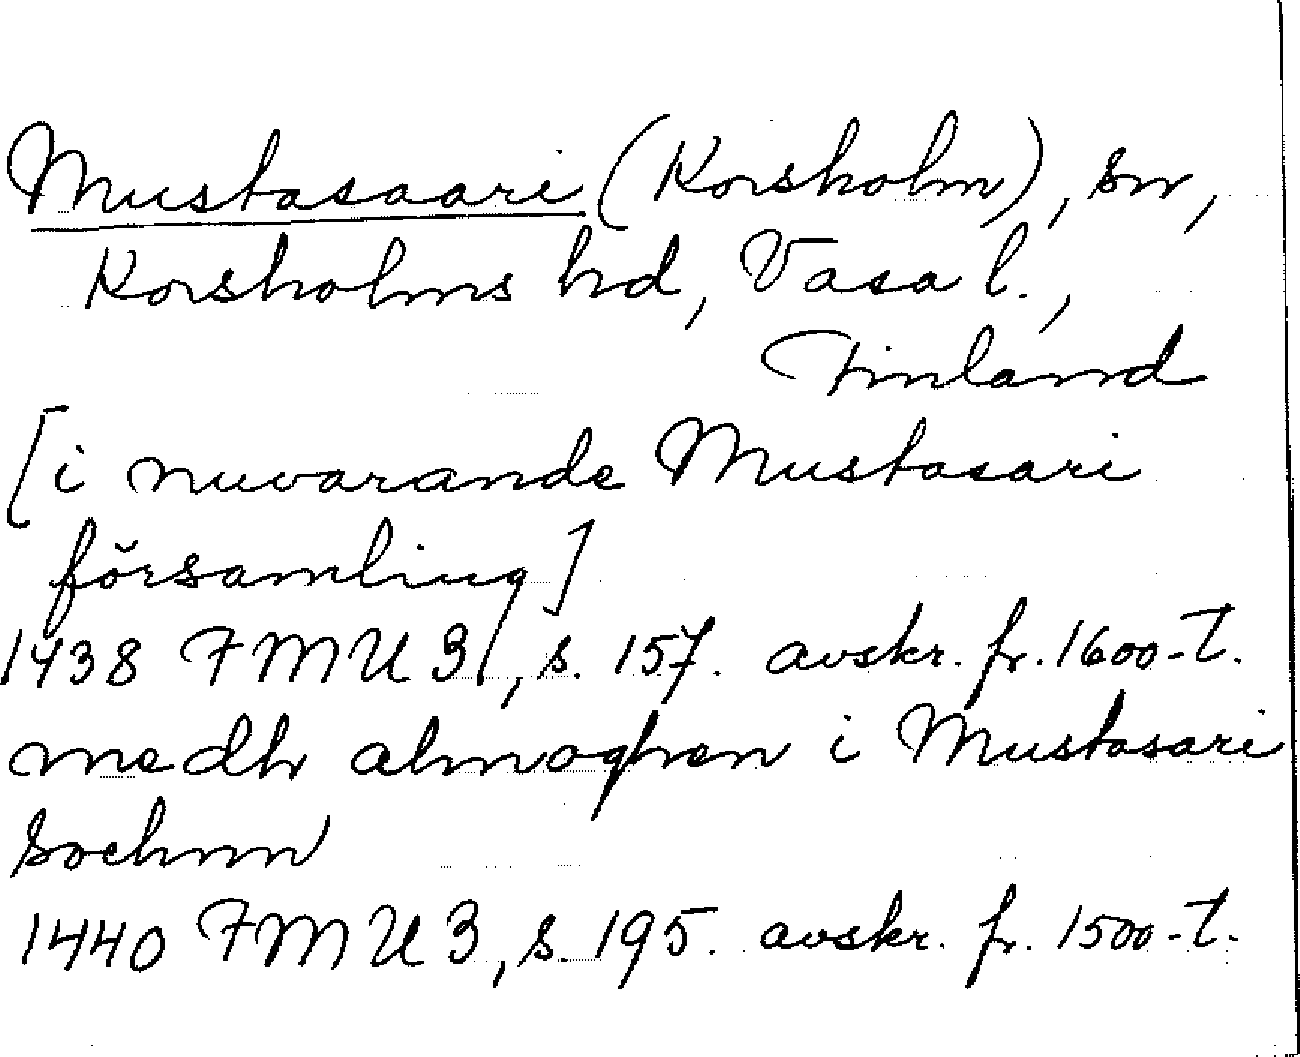 Mustasaari (Korsholm), sn,
Korsholms hd, Vasa l.,
Finland
[i nuvarande Mustasari
församling]
1438 FMU 3, s. 157. avskr. fr. 1600-t.
medh almoghen i Mustasari
Sochnn
1440 FMU 3, s. 195. avskr. fr. 1500-t.